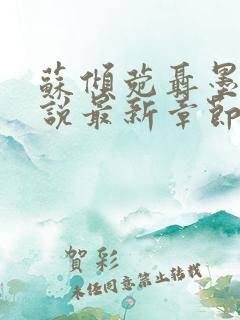 蘇傾蒓聶墨
說最新章節
賀彩
未經同意禁止轉載